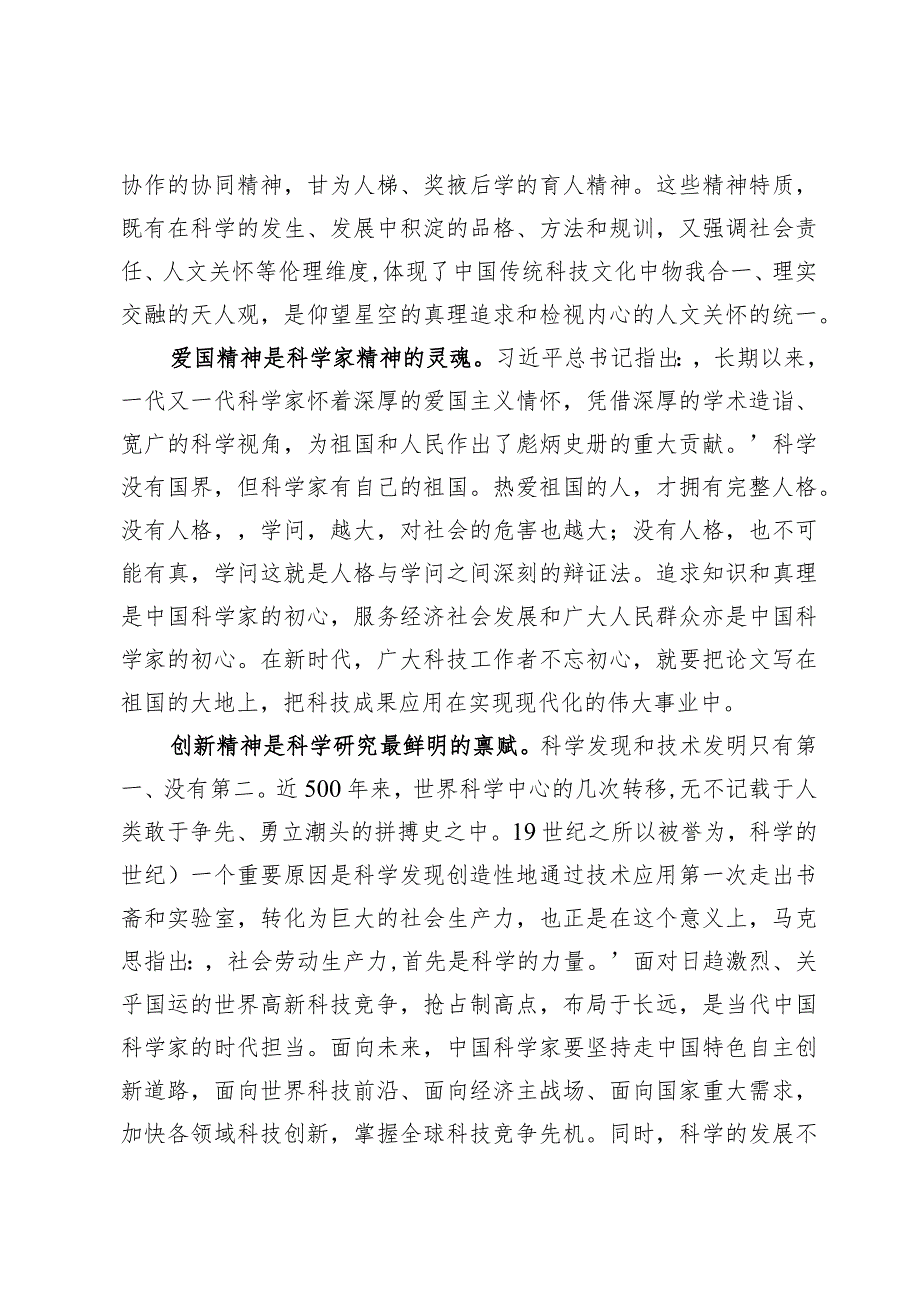 协作的协同精神，甘为人梯、奖掖后学的育人精神。这些精神特质，
既有在科学的发生、发展中积淀的品格、方法和规训，又强调社会责
任、人文关怀等伦理维度,体现了中国传统科技文化中物我合一、理实
交融的天人观，是仰望星空的真理追求和检视内心的人文关怀的统一。
爱国精神是科学家精神的灵魂。习近平总书记指出:，长期以来，
一代又一代科学家怀着深厚的爱国主义情怀，凭借深厚的学术造诣、
宽广的科学视角，为祖国和人民作出了彪炳史册的重大贡献。’科学
没有国界，但科学家有自己的祖国。热爱祖国的人，才拥有完整人格。
没有人格，，学问，越大，对社会的危害也越大；没有人格，也不可
能有真，学问这就是人格与学问之间深刻的辩证法。追求知识和真理
是中国科学家的初心，服务经济社会发展和广大人民群众亦是中国科
学家的初心。在新时代，广大科技工作者不忘初心，就要把论文写在
祖国的大地上，把科技成果应用在实现现代化的伟大事业中。
创新精神是科学研究最鲜明的禀赋。科学发现和技术发明只有第
一、没有第二。近500年来，世界科学中心的几次转移,无不记载于人
类敢于争先、勇立潮头的拼搏史之中。19世纪之所以被誉为，科学的
世纪）一个重要原因是科学发现创造性地通过技术应用第一次走出书
斋和实验室，转化为巨大的社会生产力，也正是在这个意义上，马克
思指出:，社会劳动生产力,首先是科学的力量。’面对日趋激烈、关
乎国运的世界高新科技竞争，抢占制高点，布局于长远，是当代中国
科学家的时代担当。面向未来，中国科学家要坚持走中国特色自主创
新道路，面向世界科技前沿、面向经济主战场、面向国家重大需求，
加快各领域科技创新，掌握全球科技竞争先机。同时，科学的发展不